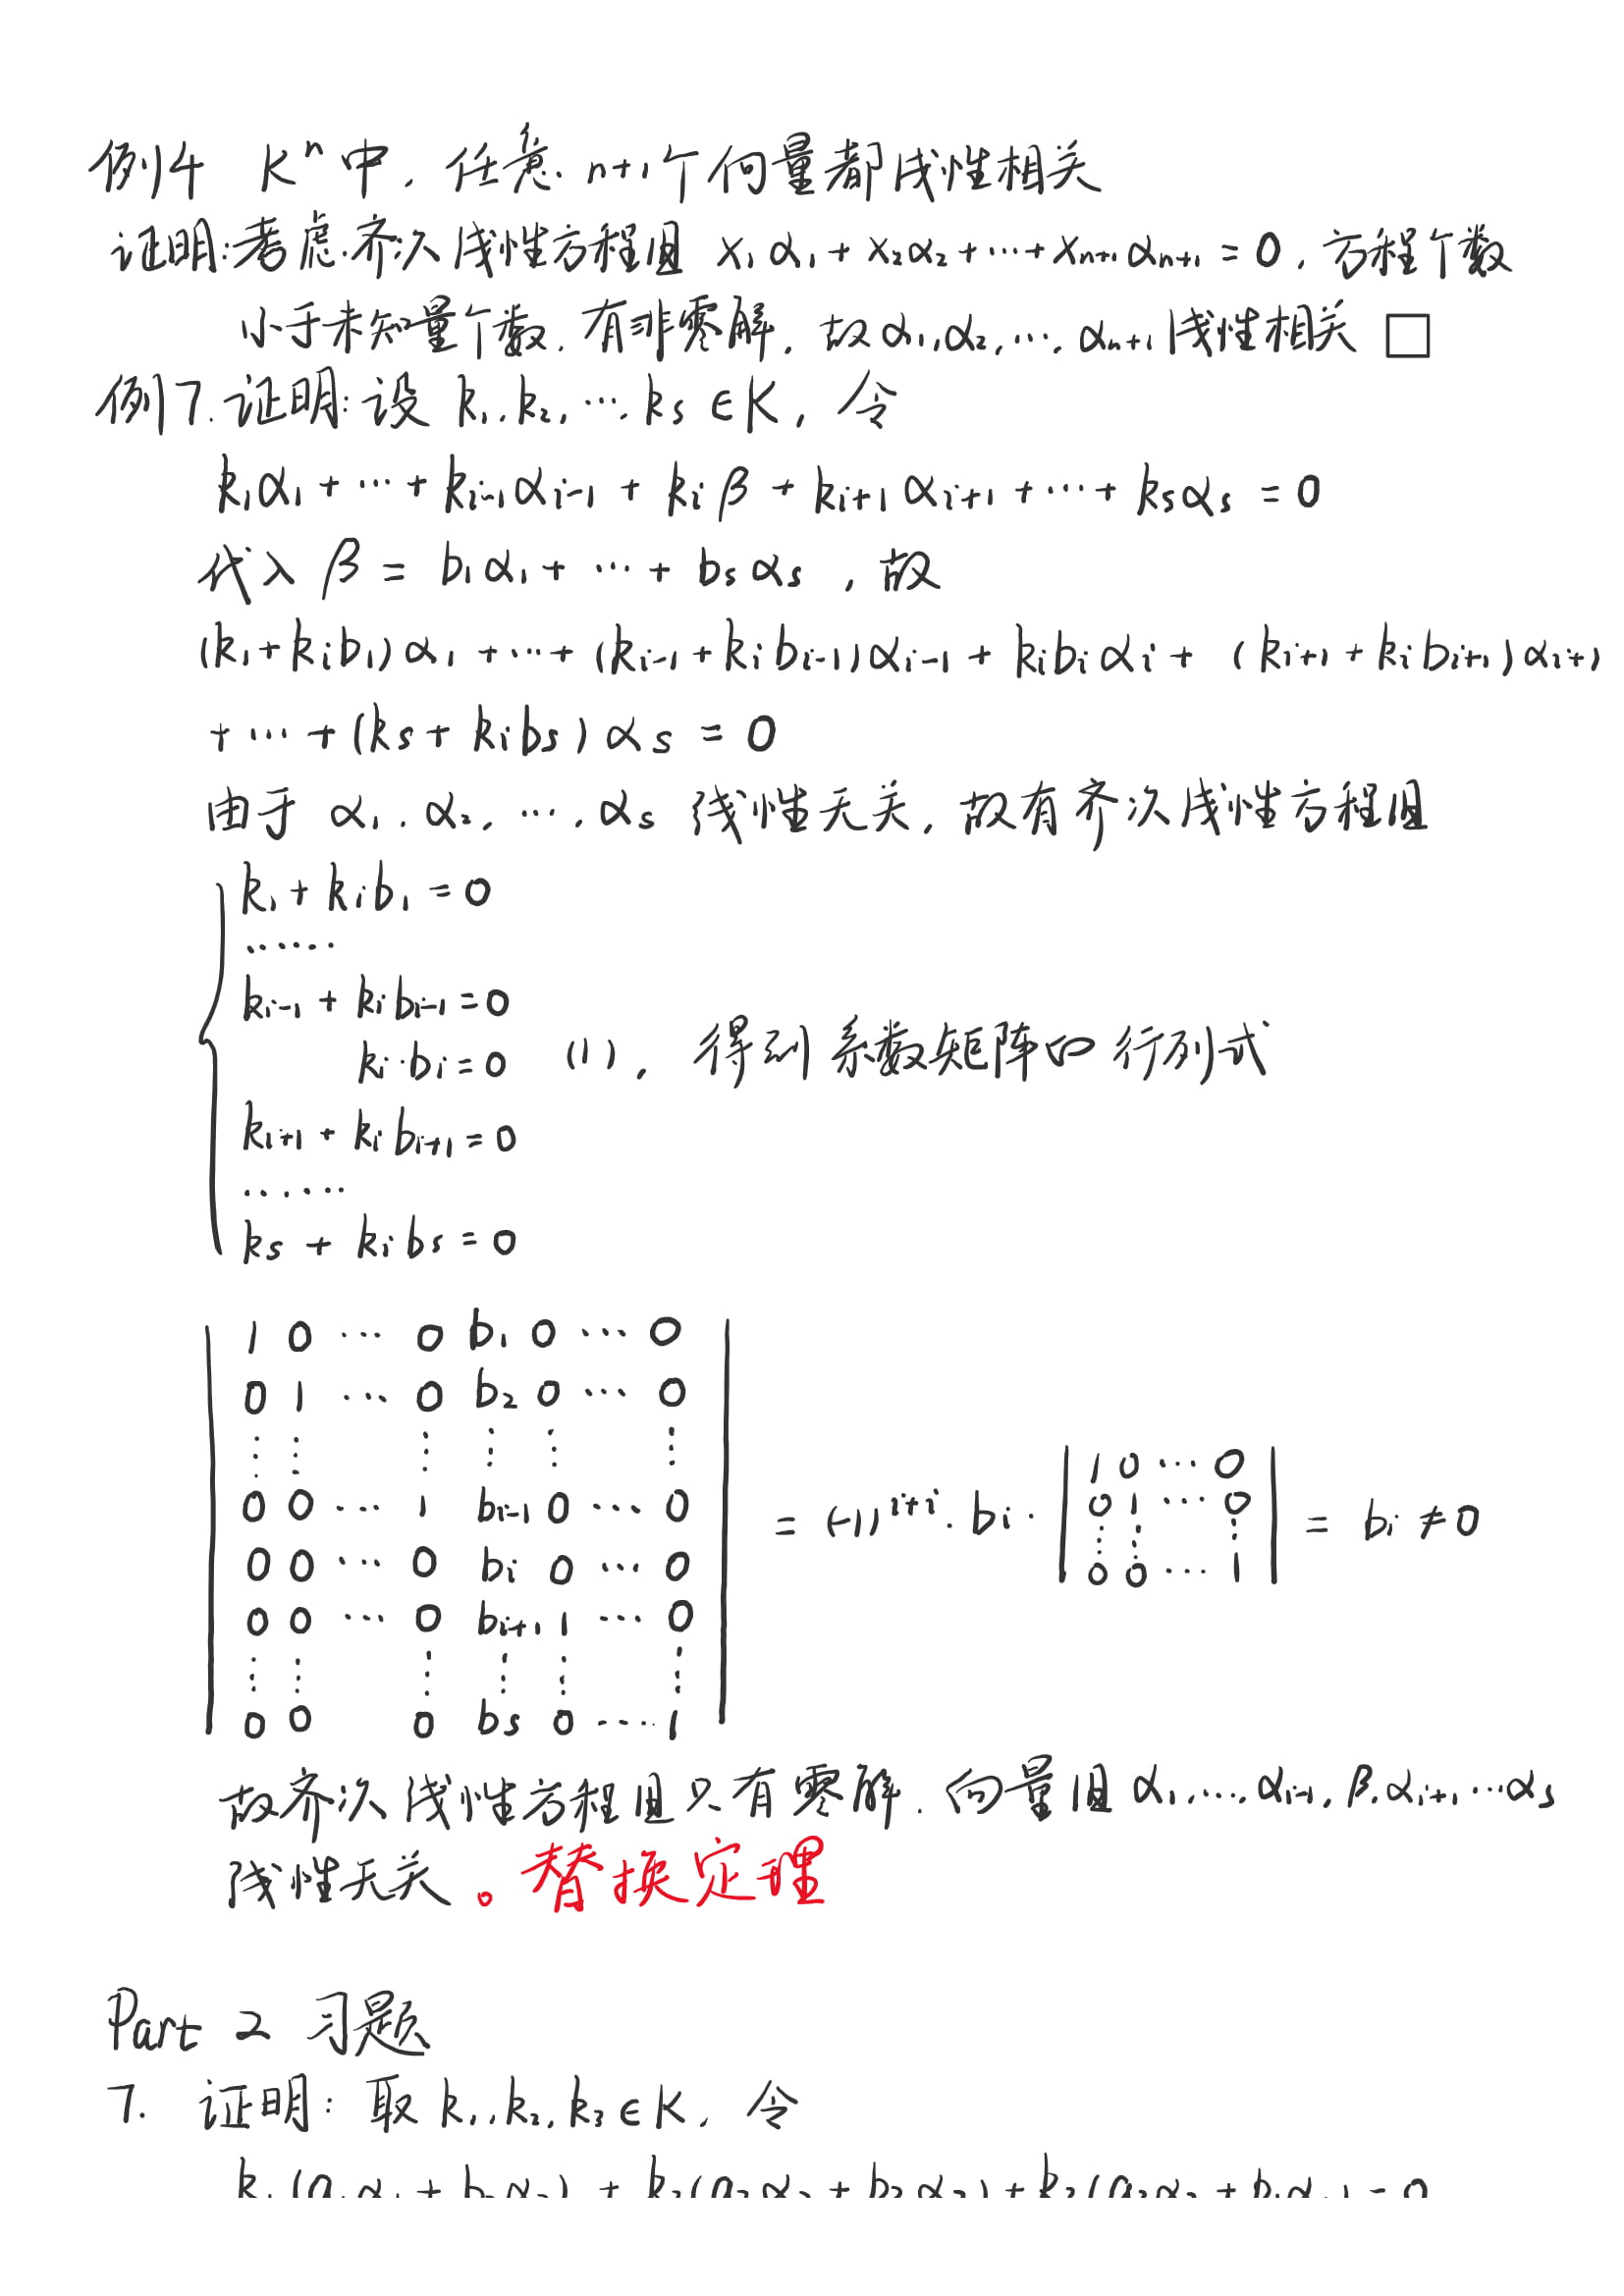 例4 Kⁿ中, 任意 n+1个向量都线性相关
证明:考虑齐次线性方程组 x₁α₁+x₂α₂+⋯+xₙ₊₁αₙ₊₁=0, 方程个数
小于未知量个数, 有非零解, 故α₁,α₂,⋯,αₙ₊₁线性相关 □
例7. 证明:设 k₁,k₂,⋯,kₛ∈K, 令
k₁α₁+⋯+kᵢ₋₁αᵢ₋₁+kᵢβ+kᵢ₊₁αᵢ₊₁+⋯+kₛαₛ=0
代入 β=b₁α₁+⋯+bₛαₛ, 故
(k₁+kᵢb₁)α₁+⋯+(kᵢ₋₁+kᵢbᵢ₋₁)αᵢ₋₁+kᵢbᵢαᵢ+(kᵢ₊₁+kᵢbᵢ₊₁)αᵢ₊₁
+⋯+(kₛ+kᵢbₛ)αₛ=0
由于 α₁,α₂,⋯,αₛ 线性无关, 故有齐次线性方程组
k₁+kᵢb₁=0
⋯⋯
kᵢ₋₁+kᵢbᵢ₋₁=0
kᵢ·bᵢ=0 (1), 得到系数矩阵的行列式
kᵢ₊₁+kᵢbᵢ₊₁=0
⋯⋯
kₛ+kᵢbₛ=0
1 0 ⋯ 0 b₁ 0 ⋯ 0
0 1 ⋯ 0 b₂ 0 ⋯ 0
⋮ ⋮ ⋮ ⋮ ⋮ ⋮
0 0 ⋯ 1 bᵢ₋₁ 0 ⋯ 0
0 0 ⋯ 0 bᵢ 0 ⋯ 0
0 0 ⋯ 0 bᵢ₊₁ 1 ⋯ 0
⋮ ⋮ ⋮ ⋮ ⋮ ⋮
0 0 0 bₛ 0 ⋯ 1
= (-1)ⁱ⁺ⁱ·bᵢ·
1 0 ⋯ 0
0 1 ⋯ 0
⋮ ⋮ ⋮
0 0 ⋯ 1
= bᵢ≠0
故齐次线性方程组只有零解, 向量组α₁,⋯,αᵢ₋₁,β,αᵢ₊₁,⋯αₛ
线性无关。替换定理
Part 2 习题
7. 证明: 取k₁,k₂,k₃∈K, 令
k₁(a₁α₁+b₂α₂)+k₂(a₂α₂+b₃α₃)+k₃(a₃α₃+b₁α₁)=0